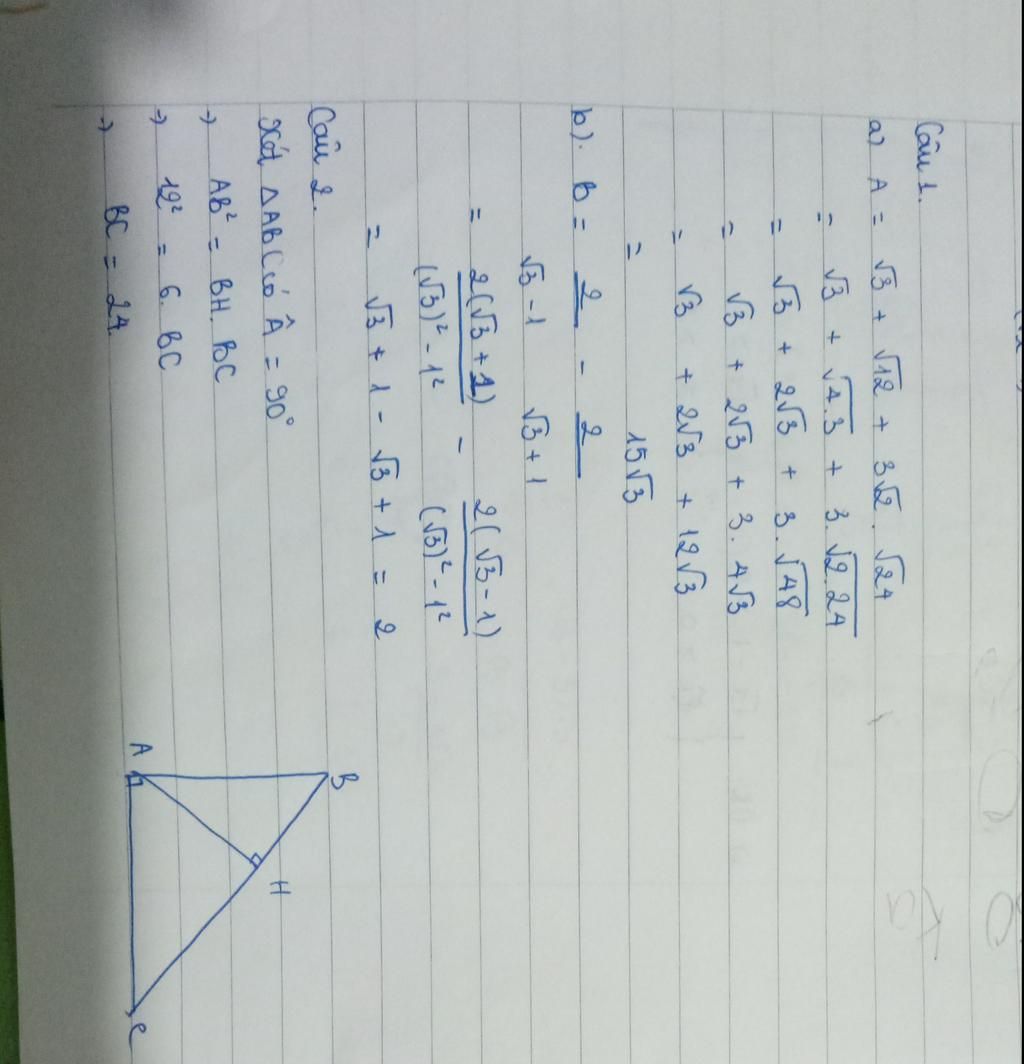 Câu 1.
a) A = √3 + √12 + 3√2 . √24
= √3 + √4.3 + 3.√2.24
= √3 + 2√3 + 3.√48
= √3 + 2√3 + 3. 4√3
= √3 + 2√3 + 12√3
= 15√3
b). B = 2 - 2
√3 - 1 √3 + 1
= 2(√3 + 1) - 2(√3 - 1)
(√3)² - 1² (√3)² - 1²
= √3 + 1 - √3 + 1 = 2
Câu 2.
Xét ΔABC có Â = 90°
B
→ AB² = BH. BC
H
→ 12² = 6. BC
A
→ BC = 24.
C